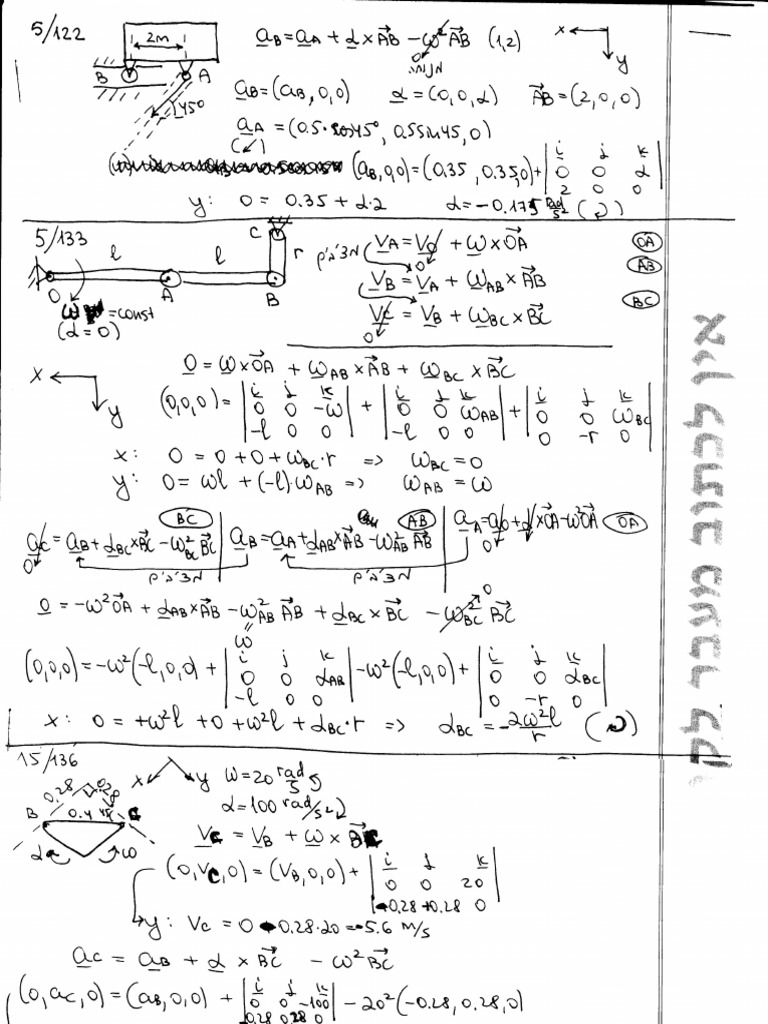 5/122
2m
B
A
45°
a_B = a_A + α × AB - ω² AB (1,2)
0
x
y
a_B = (a_B, 0, 0) α = (0, 0, α) AB = (2, 0, 0)
a_A = (0.5·cos45°, 0.5sin45, 0)
(a_B, 0, 0) = (0.35, 0.35, 0) + | i j k
0 0 α
2 0 0 |
y: 0 = 0.35 + α·2 α = -0.175 rad/s² (↻)
5/133
l l r
O A B C
ω = const
(α = 0)
V_A = V_O + ω × OA (OA)
0
מציבים
V_B = V_A + ω_AB × AB (AB)
V_C = V_B + ω_BC × BC (BC)
0
0 = ω × OA + ω_AB × AB + ω_BC × BC
x
y
(0,0,0) = | i j k
0 0 -ω
-l 0 0 | + | i j k
0 0 ω_AB
-l 0 0 | + | i j k
0 0 ω_BC
0 -r 0 |
x: 0 = 0 + 0 + ω_BC·r => ω_BC = 0
y: 0 = ωl + (-l)·ω_AB => ω_AB = ω
(BC)
a_C = a_B + α_BC × BC - ω²_BC BC
0
(AB)
a_B = a_A + α_AB × AB - ω²_AB AB
a_A = a_O + α × OA - ω² OA (OA)
0 0
מציבים
מציבים
0 = -ω² OA + α_AB × AB - ω²_AB AB + α_BC × BC - ω²_BC BC
0
ω
(0,0,0) = -ω²(-l,0,0) + | i j k
0 0 α_AB
-l 0 0 | - ω²(-l,0,0) + | i j k
0 0 α_BC
0 -r 0 |
x: 0 = +ω²l + 0 + ω²l + α_BC·r => α_BC = -2ω²l/r (↻)
15/136
0.28 0.28
B 0.4 45 C
α ω
x
y
ω = 20 rad/s ↺
α = 100 rad/s² ↻
V_C = V_B + ω × BC
(0, V_C, 0) = (V_B, 0, 0) + | i j k
0 0 20
-0.28 +0.28 0 |
y: V_C = 0 - 0.28·20 = -5.6 m/s
a_C = a_B + α × BC - ω² BC
(0, a_C, 0) = (a_B, 0, 0) + | i j k
0 0 -100
-0.28 0.28 0 | - 20²(-0.28, 0.28, 0)
אין לכתוב מעבר לקו